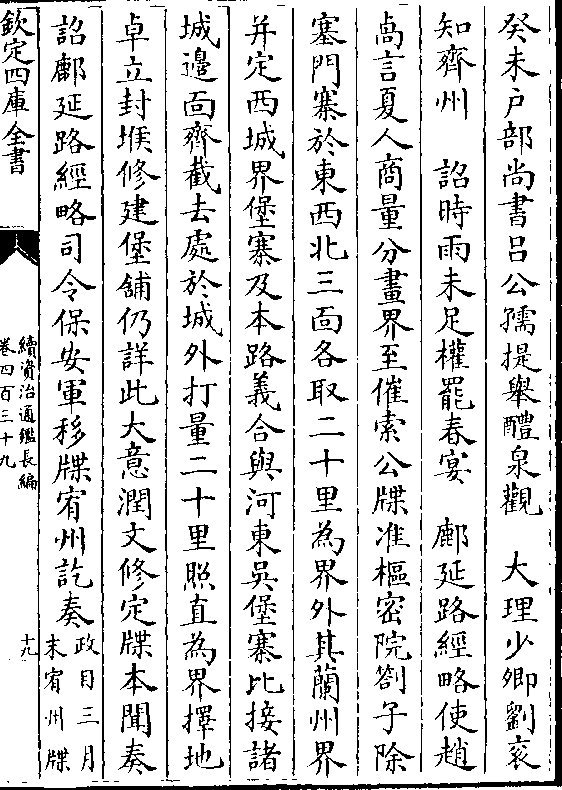 癸未户部尚書吕公孺提舉醴泉觀　大理少卿劉衮
知齊州　詔時雨未足權罷春宴　鄜延路經略使趙
卨言夏人商量分畫界至催索公牒准樞密院劄子除
塞門寨於東西北三面各取二十里為界外其蘭州界
并定西城界堡寨及本路義合與河東吳堡寨比接諸
城邊面齊截去處於城外打量二十里照直為界擇地
卓立封堠修建堡舖仍詳此大意潤文修定牒本聞奏
詔鄜延路經略司令保安軍移牒宥州訖奏政目三月
末宥州牒
欽定四庫全書
續資治通鑑長編
卷四百三十九
十九